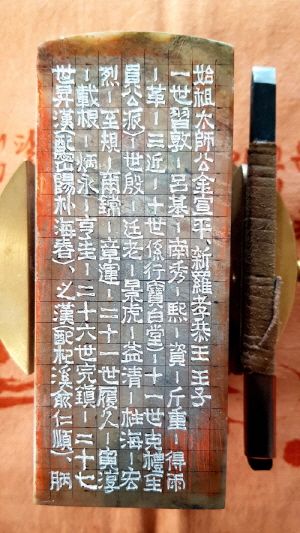 始祖太師公金宣平、新羅孝恭王 王子
一世習敦－呂基－南秀－熙－資－斤重－得雨
－革－三近－十世係行寶白堂)－十一世克禮(生
員公派)－世殷－廷老－景虎－益清－柱海－宏
烈－至頬－爾鏡－章運－二十一世履久－興淳
－載根－炳永－亨圭－二十六世完鎮－二十七
世昇漢(配密陽朴海春)、必漢(配杞溪兪仁順)、炳